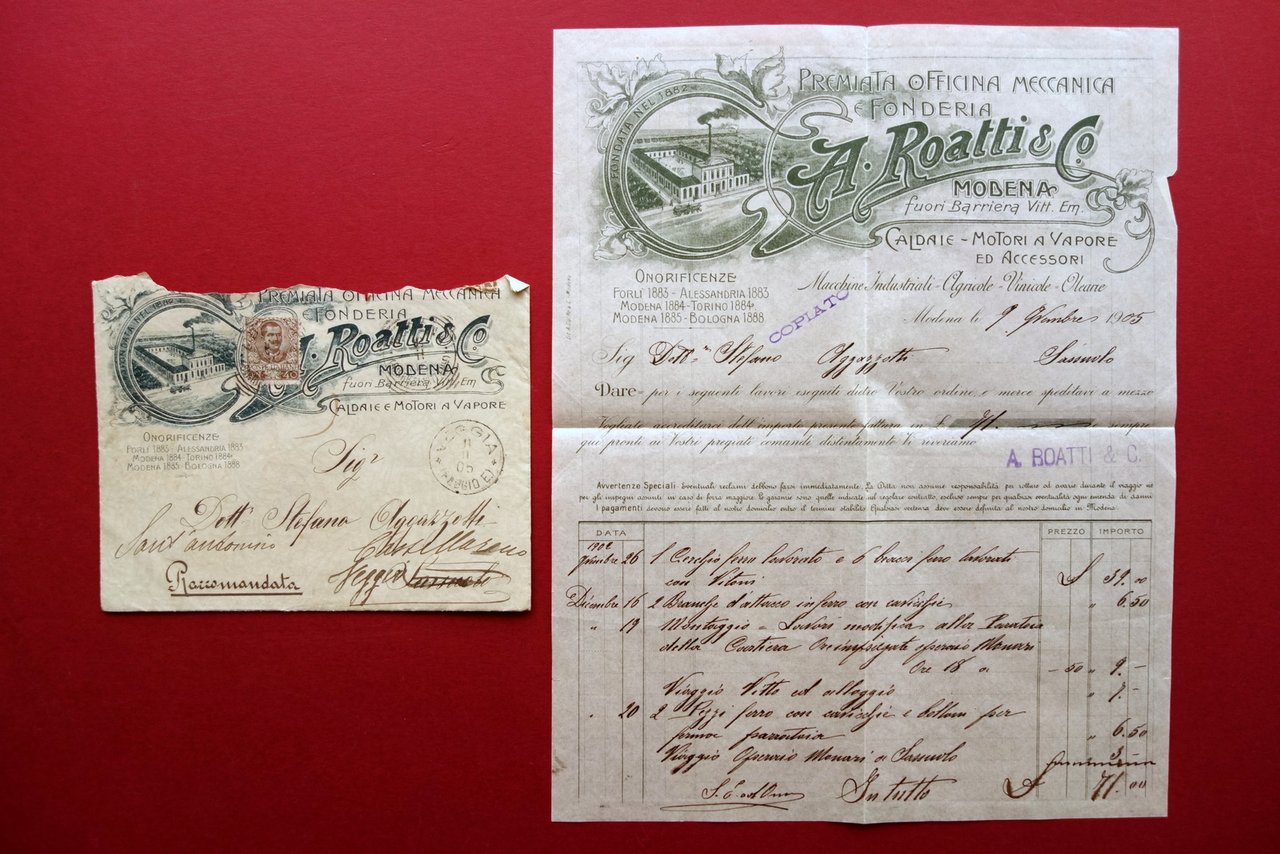 PREMIATA OFFICINA MECCANICA
E FONDERIA
FONDATA NEL 1882
A. Roatti & Co
MODENA
fuori Barriera Vitt. Em.
CALDAIE E MOTORI A VAPORE
ONORIFICENZE
FORLI 1883 - ALESSANDRIA 1883
MODENA 1884 - TORINO 1884
MODENA 1885 - BOLOGNA 1888
VEGGIA
11
11
05
Sigr
Dott. Stefano Aggazzotti
Sant'antonino
Veggia
Raccomandata
PREMIATA OFFICINA MECCANICA
E FONDERIA
FONDATA NEL 1882
A. Roatti & Co.
MODENA
fuori Barriera Vitt. Em.
CALDAIE - MOTORI A VAPORE
ED ACCESSORI
ONORIFICENZE
FORLI 1883 - ALESSANDRIA 1883
MODENA 1884 - TORINO 1884
MODENA 1885 - BOLOGNA 1888
Macchine Industriali - Agricole - Vinicole - Olearie
COPIATO
Modena li 9 9mbre 1905
Sig. Dott. Stefano Aggazzotti Sassuolo
Dare per i seguenti lavori eseguiti dietro Vostro ordine, e merce speditavi a mezzo
Vogliate accreditarci dell'importo presente fattura in L 71.— e sempre
qui pronti ai Vostri pregiati comandi distintamente Vi riveriamo
A. BOATTI & C.
Avvertenze Speciali Eventuali reclami debbono farsi immediatamente. La Ditta non assume responsabilità per rotture od avarie durante il viaggio né
per gli impegni assunti in caso di forza maggiore. Le garanzie sono quelle indicate sul regolare contratto, escluso sempre per qualsiasi eventualità ogni emenda di danni
I pagamenti devono essere fatti al nostro domicilio entro il termine stabilito. Qualsiasi vertenza deve essere definita al nostro domicilio in Modena
DATA PREZZO IMPORTO
Novembre 26 1 Cerchio ferro lavorato e 6 bracci ferro lavorati
con Vitoni £ 39.00
Dicembre 16 2 Branche d'attacco in ferro con caviglie " 6.50
" 19 Montaggio - Lavori modifica alla
della operaio Monari
Ore 18 a — 50 " 9.—
Viaggio Vitto ed alloggio " 7.—
" 20 2 Pezzi ferro con caviglie e bolloni per
" 6.50
Viaggio Operaio Monari a Sassuolo 3
In tutto £ 71.00